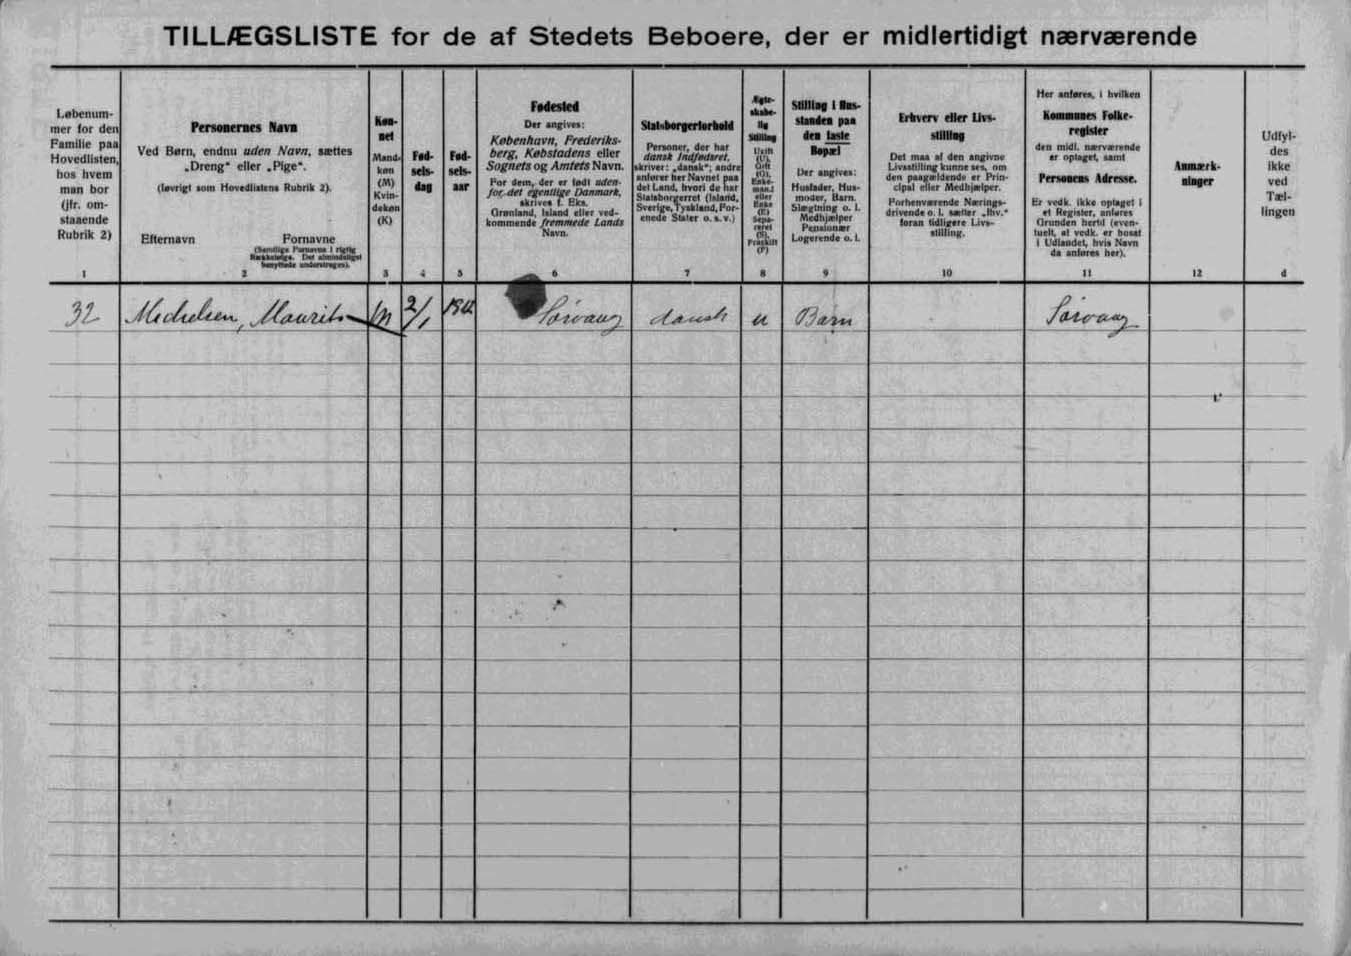 TILLÆGSLISTE for de af Stedets Beboere, der er midlertidigt nærværende
Løbenum-
mer for den
Familie paa
Hovedlisten,
hos hvem
man bor
(jfr. om-
staaende
Rubrik 2)
1
Personernes Navn
Ved Børn, endnu uden Navn, sættes
„Dreng“ eller „Pige“.
(Iøvrigt som Hovedlistens Rubrik 2).
Efternavn Fornavne
(Samtlige Fornavne i rigtig
Rækkefølge. Det almindeligst
benyttede understreges).
2
Køn-
net
Mand-
køn
(M)
Kvin-
dekøn
(K)
3
Fød-
sels-
dag
4
Fød-
sels-
aar
5
Fødested
Der angives:
København, Frederiks-
berg, Købstadens eller
Sognets og Amtets Navn.
For dem, der er født uden-
for det egentlige Danmark,
skrives f. Eks.
Grønland, Island eller ved-
kommende fremmede Lands
Navn.
6
Statsborgerforhold
Personer, der har
dansk Indfødsret,
skriver: „dansk“; andre
anfører her Navnet paa
det Land, hvori de har
Statsborgerret (Island,
Sverige, Tyskland, For-
enede Stater o. s. v.)
7
Ægte-
skabe-
lig
Stilling
Ugift
(U),
Gift
(G),
Enke-
mand
eller
Enke
(E)
Sepa-
reret
(S),
Fraskilt
(F)
8
Stilling i Hus-
standen paa
den faste
Bopæl
Der angives:
Husfader, Hus-
moder, Barn,
Slægtning o. l.
Medhjælper
Pensionær
Logerende o. l.
9
Erhverv eller Livs-
stilling
Det maa af den angivne
Livsstilling kunne ses, om
den paagældende er Prin-
cipal eller Medhjælper.
Forhenværende Nærings-
drivende o. l. sætter „fhv.“
foran tidligere Livs-
stilling.
10
Her anføres, i hvilken
Kommunes Folke-
register
den midl. nærværende
er optaget, samt
Personens Adresse.
Er vedk. ikke optaget i
et Register, anføres
Grunden hertil (even-
tuelt, at vedk. er bosat
i Udlandet, hvis Navn
da anføres her).
11
Anmærk-
ninger
12
Udfyl-
des
ikke
ved
Tæl-
lingen
d
32 Michelsen, Maurits M 2/1 Sørvaag dansk u Barn Sørvaag